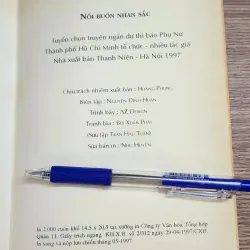 NỖI BUỒN NHAN SẮC
Tuyển chọn truyện ngắn dự thi báo Phụ Nữ
Thành phố Hồ Chí Minh tổ chức - nhiều tác giả
Nhà xuất bản Thanh Niên - Hà Nội 1997
Chịu trách nhiệm xuất bản: HOÀNG PHONG
Biên tập: NGUYỄN ĐÌNH HOÀN
Trình bày:
Tranh bìa: BÙI XUÂN PHÁI
(Sưu tập TRẦN HẬU TUẤN)
Sửa bản in: NHƯ HUYỀN
In 2.000 cuốn khổ 14,5 x 20,5 tại xưởng in Công ty Văn hóa Tổng hợp
Quận 11. Giấy trích ngang KH.X.B. số 2/012 ngày 29-04-1997/CXB.
In xong và nộp lưu chiểu tháng 05-1997